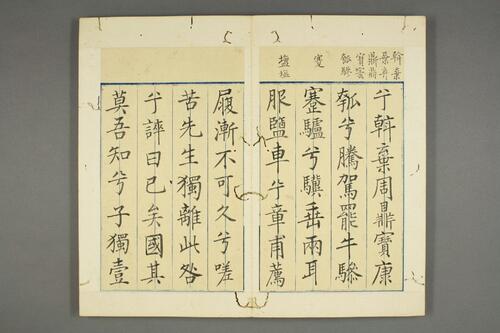 兮斡棄周鼎寶康
瓠兮騰駕罷牛驂
蹇驢兮驥垂兩耳
服鹽車兮章甫薦
屨漸不可久兮嗟
苦先生獨離此咎
兮誶曰已矣國其
莫吾知兮子獨壹